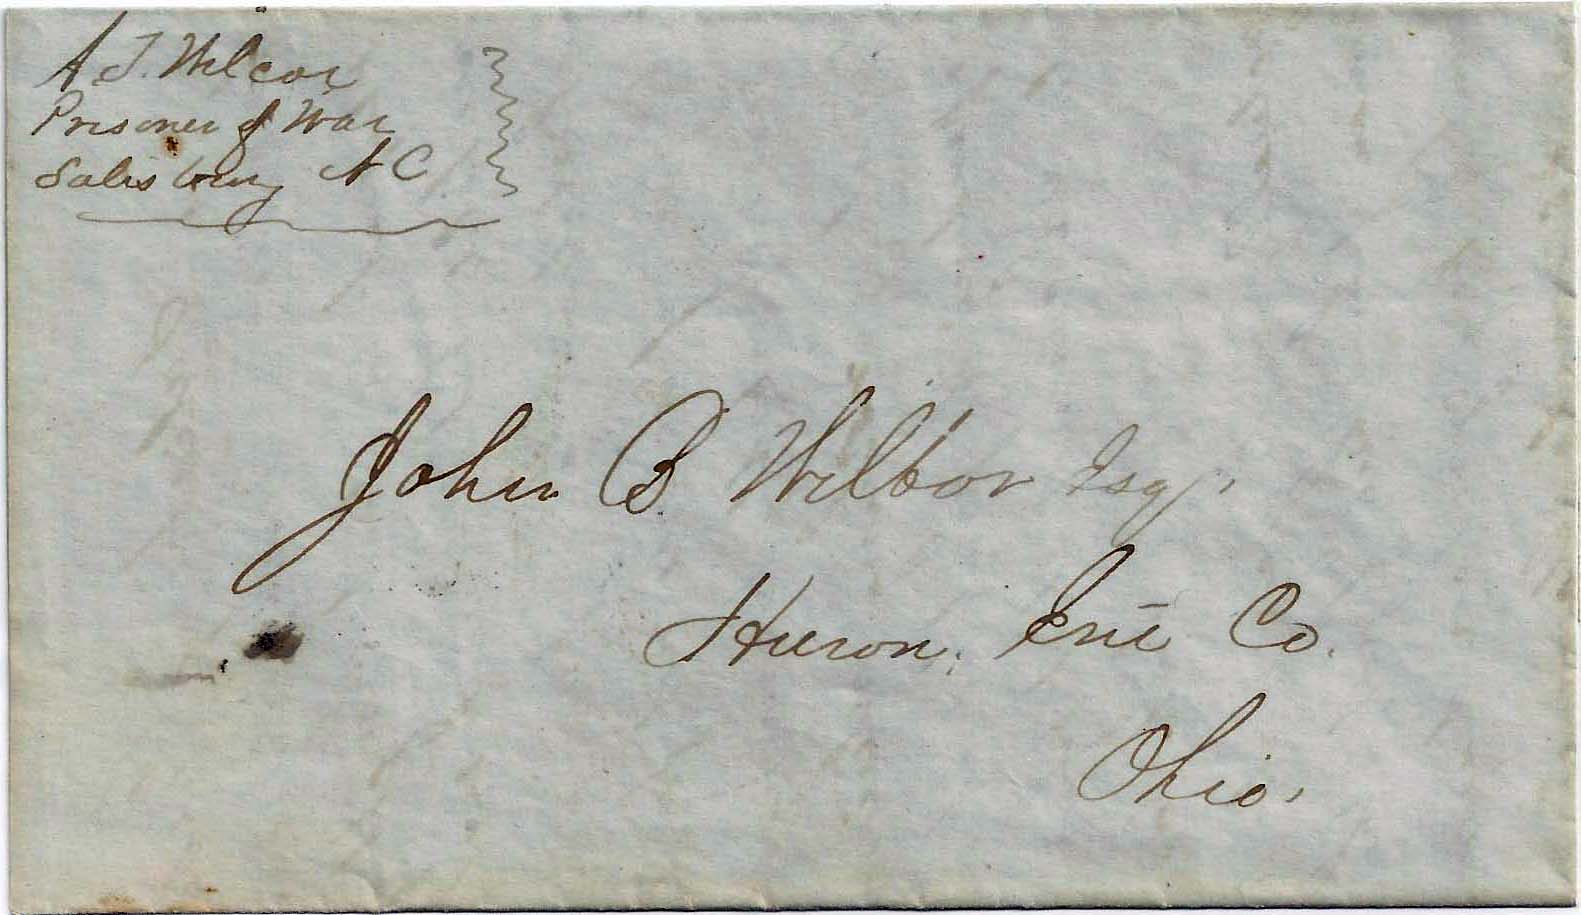 A. J. Wilcox
Prisoner of War
Salisbury N C
John B. Wilbor Esq.
Huron, Erie Co.
Ohio.